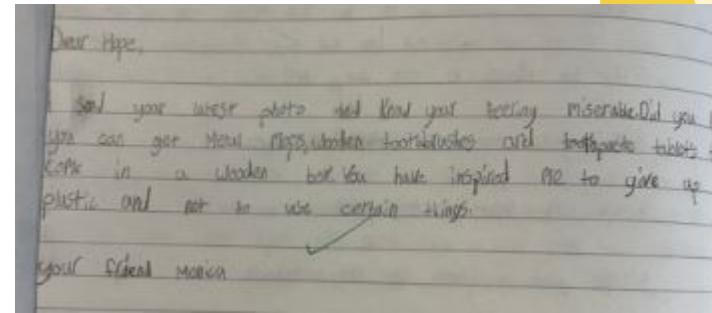 Dear Hope,
I sed your latest photo and know your feeling miserable. Did you
you can get metal mops, wooden tootsbrushes and toothpaste tablets
come in a wooden box. You have inspired me to give up
plastic and not to use certain things.
your friend Monica